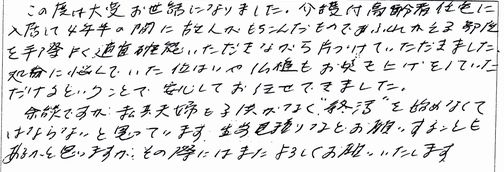 この度は大変お世話になりました。介護付高齢者住宅に
入居して4年半の間にほとんどもらこんだものであふれかえる部屋
を手際よく適宜確認いただきながら片づけていただきました。
処分に悩んでいた位はいや仏壇もお焚き上げをしていた
だけるということで安心してお任せできました。
余談ですが私共夫婦も子供がなく"終活"を始めなくて
はならないと思っています。生前見積りなどお願いすることも
あるかと思いますが、その際にはまたよろしくお願いいたします